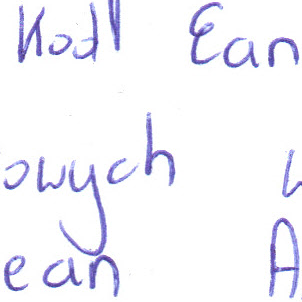 Kod Ean
owych
ean A